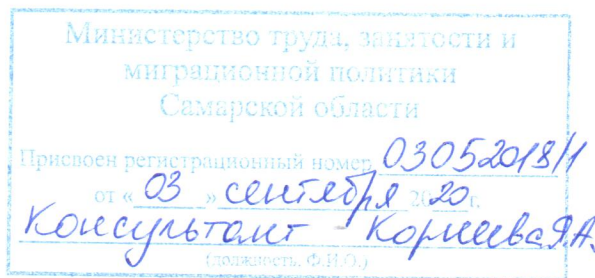 Министерство труда, занятости и
миграционной политики
Самарской области
Присвоен регистрационный номер 03052018/1
от « 03 » сентября 2020г.
Консультант Корнеева Я.А.
(должность, Ф.И.О.)